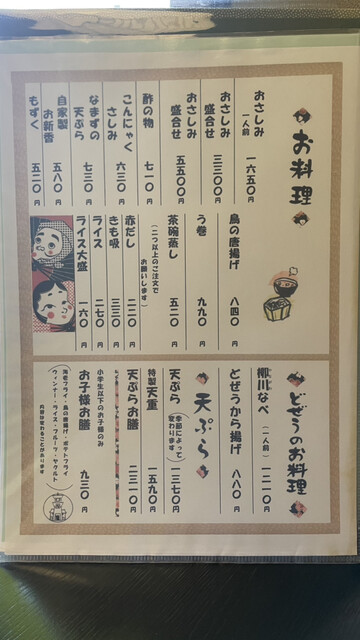 お料理
おさしみ 一人前 一六五〇円
おさしみ盛合せ 三三〇〇円
おさしみ盛合せ 五五〇〇円
酢の物 七一〇円
こんにゃくさしみ 六三〇円
なまずの天ぷら 七三〇円
自家製お新香 五八〇円
もずく 五二〇円
鳥の唐揚げ 八四〇円
う巻 九九〇円
茶碗蒸し 五二〇円
(二つ以上のご注文でお願いします)
赤だし 二二〇円
きも吸 三三〇円
ライス 二七〇円
ライス大盛 一六〇円
どぜうのお料理
柳川なべ (一人前) 一二一〇円
どぜうから揚げ 八八〇円
天ぷら
天ぷら (季節によって変わります) 一三七〇円
特製 天重 一五九〇円
天ぷらお膳 二三一〇円
小学生以下のお子様のみ
お子様お膳 九三〇円
(海老フライ・鳥の唐揚げ・ポテトフライ
ウィンナー・ライス・フルーツ・ヤクルト)
内容は変わることがあります